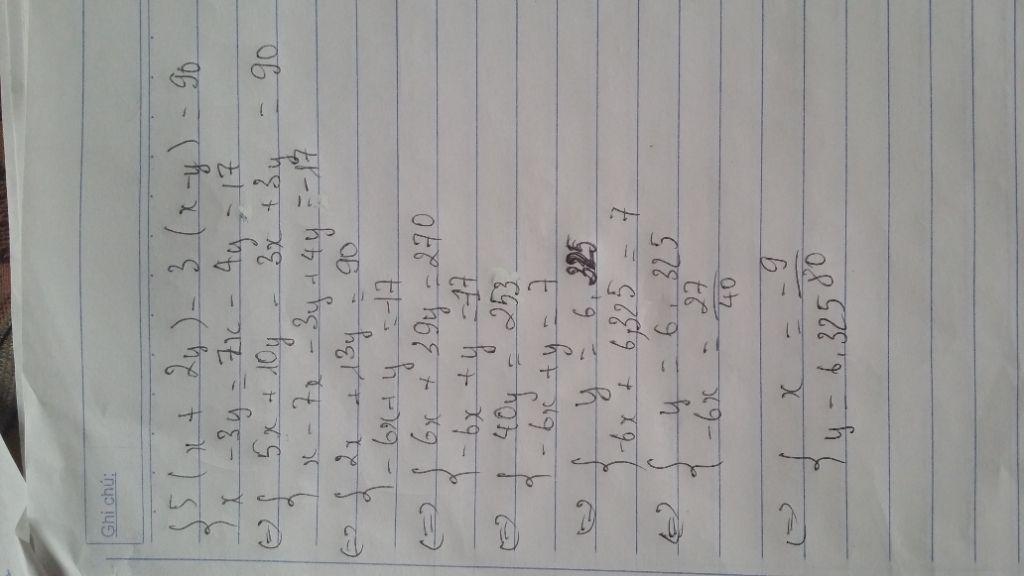 Ghi chú:
{ 5 ( x + 2y ) - 3 ( x - y ) = 90
x - 3y = 7x - 4y = 17
<=> { 5x + 10y - 3x + 3y = 90
x - 7x - 3y + 4y = -17
<=> { 2x + 13y = 90
- 6x + y = -17
<=> { 6x + 39y = 270
- 6x + y = -17
<=> { 40y = 253
- 6x + y = 7
<=> { y = 6,325
-6x + 6,325 = 7
<=> { y = 6,325
-6x = 27/40
<=> { x = -9/80
y = 6,325